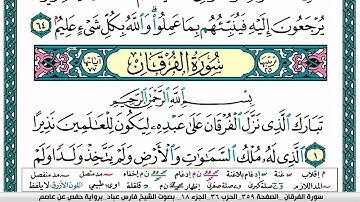 يُرْجَعُونَ إِلَيْهِ فَيُنَبِّئُهُم بِمَا عَمِلُوا۟ ۗ وَٱللَّهُ بِكُلِّ شَىْءٍ عَلِيمٌۢ ٦٤
سُورَةُ الْفُرْقَانِ
بِسْمِ ٱللَّهِ ٱلرَّحْمَٰنِ ٱلرَّحِيمِ
تَبَارَكَ ٱلَّذِى نَزَّلَ ٱلْفُرْقَانَ عَلَىٰ عَبْدِهِۦ لِيَكُونَ لِلْعَٰلَمِينَ نَذِيرًا
١ ٱلَّذِى لَهُۥ مُلْكُ ٱلسَّمَٰوَٰتِ وَٱلْأَرْضِ وَلَمْ يَتَّخِذْ وَلَدًا وَلَمْ
سورة الفرقان الصفحة ٣٥٩ الحزب ٣٦ الجزء ١٨ بصوت الشيخ فارس عباد برواية حفص عن عاصم